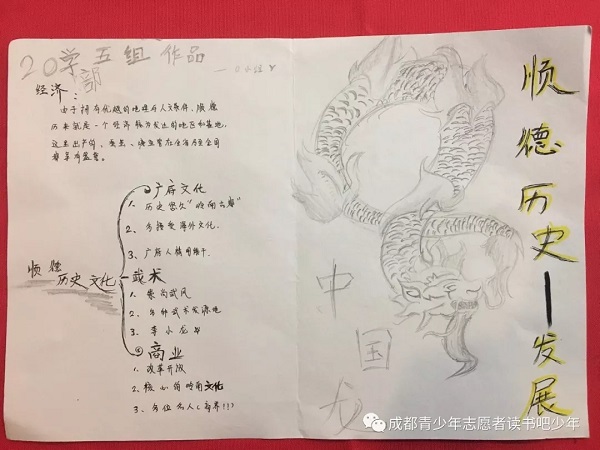 20学部五组作品
经济：
由于拥有优越的地理与人文条件，顺德
历来就是一个经济较为发达的地区和基地，
这里出产的、蚕丝、塘鱼常在全省乃至全国
享享有盛誉。
顺德历史文化
①广府文化
1、历史悠久“岭南古郡”
2、多接受海外文化。
3、广府人精明强干。
武术
1、崇尚武风
2、多种武术发源地
3、李小龙
④商业
1、改革开放
2、核心的岭南文化
3、多位名人（商界!!!）
中国龙
顺德历史—发展
成都青少年志愿者读书吧少年